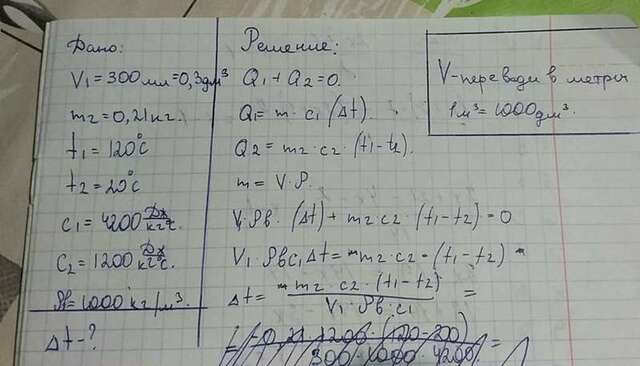 Дано:
V₁ = 300 мл = 0,3 дм³
m₂ = 0,21 кг.
t₁ = 120°C
t₂ = 20°C
c₁ = 4200 Дж/кг°C.
c₂ = 1200 Дж/кг°C.
ρв = 1000 кг/м³.
Δt - ?
Решение:
Q₁ + Q₂ = 0.
Q₁ = m · c₁ (Δt).
Q₂ = m₂ · c₂ · (t₁ - t₂).
m = V · ρ.
V · ρв · (Δt) + m₂ · c₂ · (t₁ - t₂) = 0
V₁ ρв c₁ Δt = - m₂ · c₂ · (t₁ - t₂) -
Δt = - m₂ · c₂ · (t₁ - t₂) / V₁ · ρв · c₁ =
V - переводи в метры
1 м³ = 1000 дм³.